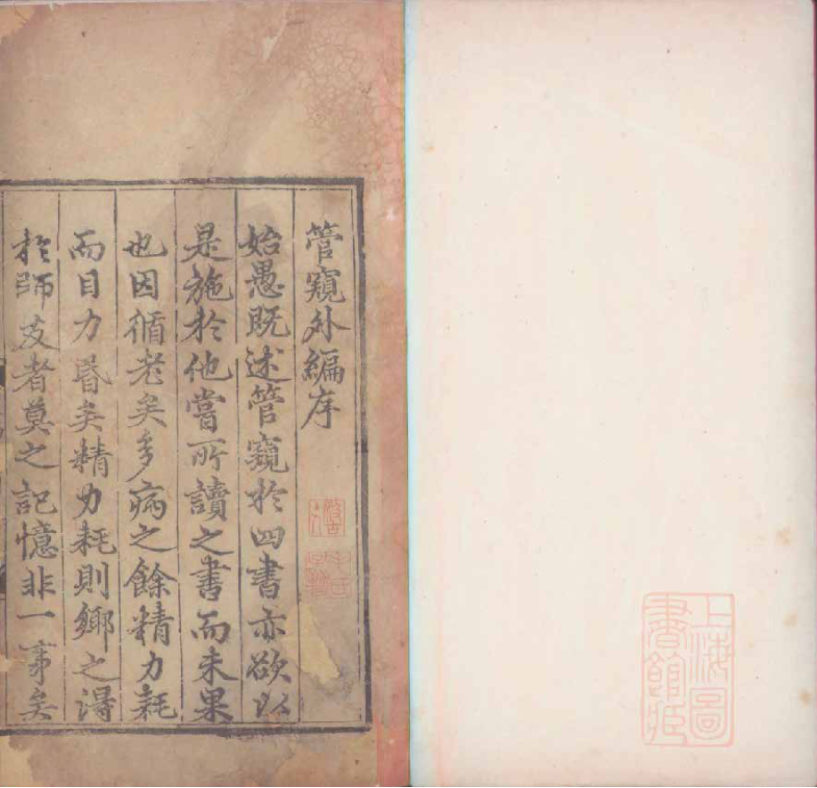 管窺外編序
始愚既述管窺於四書亦欲以
是施於他嘗所讀之書而未果
也因循老矣多病之餘精力耗
而目力昏矣精力耗則鄉之得
於師友者莫之記憶非一事矣
上海圖
書館藏